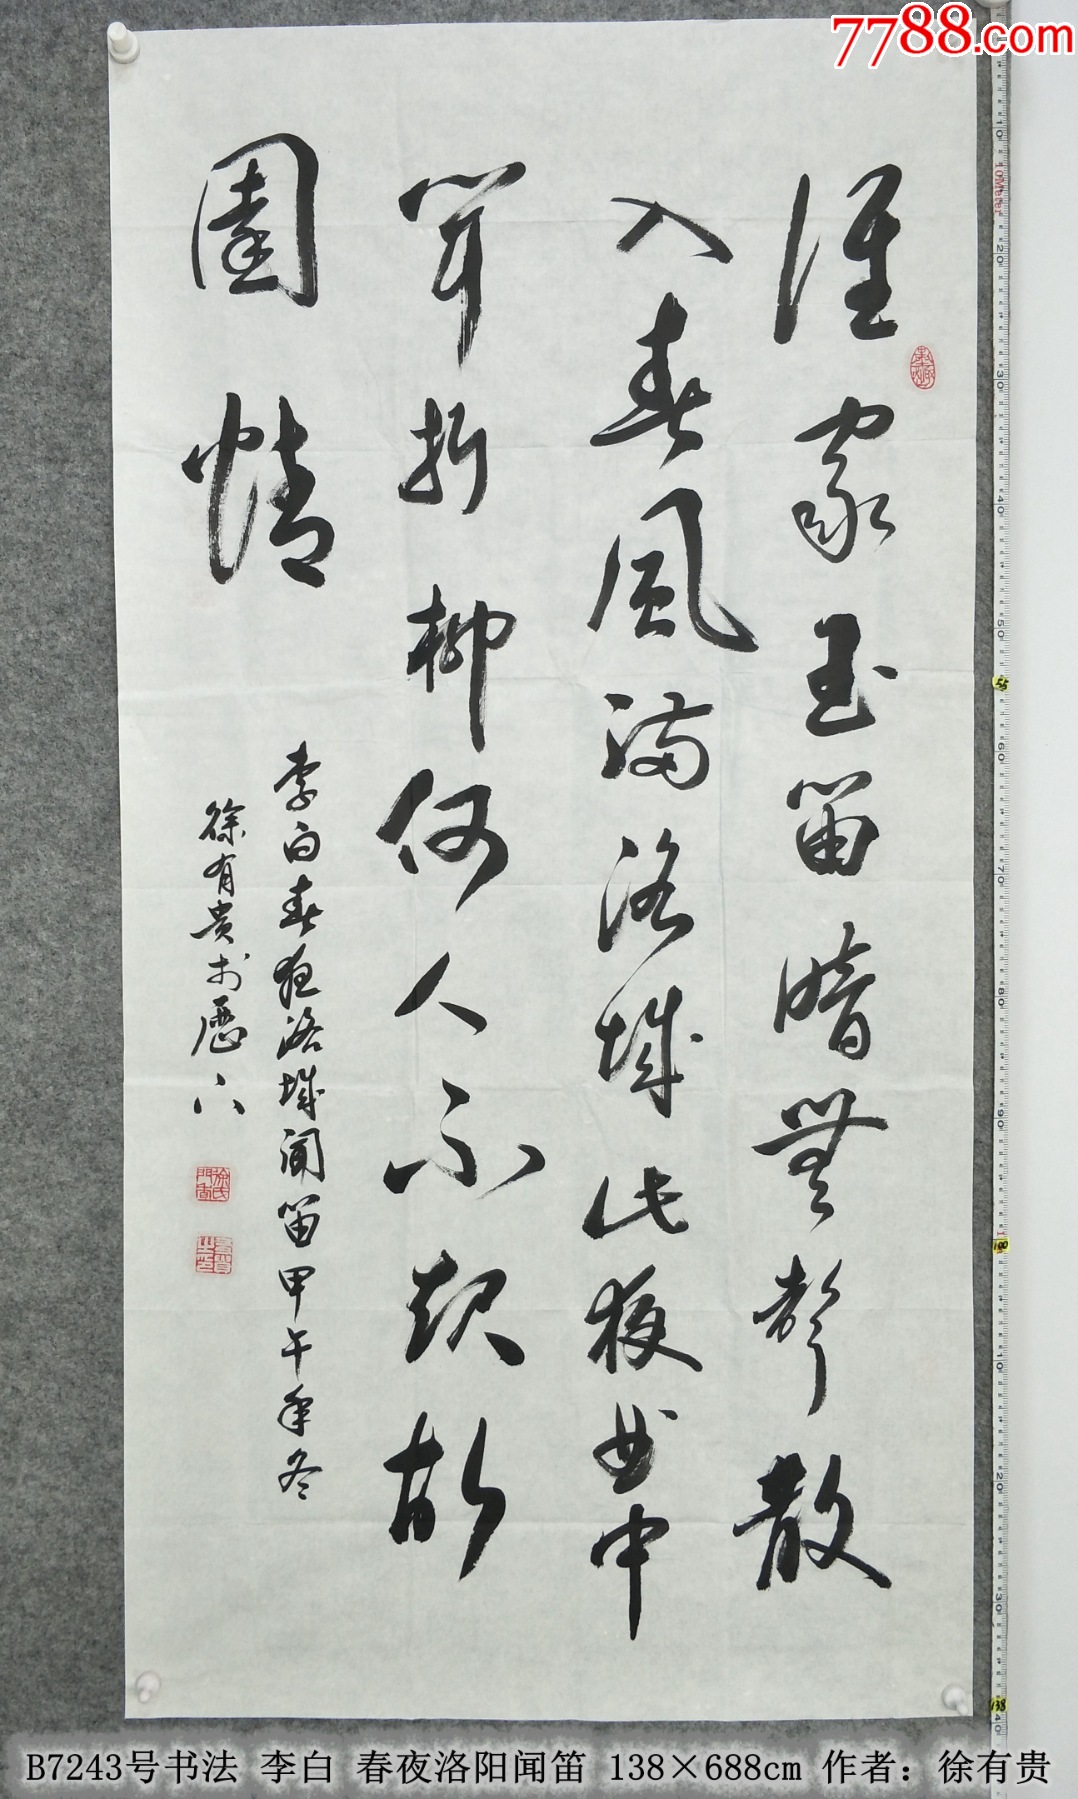 7788.com
谁家玉笛暗無聲散
入春風满洛城此夜曲中
闻折柳何人不起故
園情
李白春夜洛城闻笛甲午年冬
徐有贵於歷下
B7243号书法 李白 春夜洛阳闻笛 138×688cm 作者：徐有贵